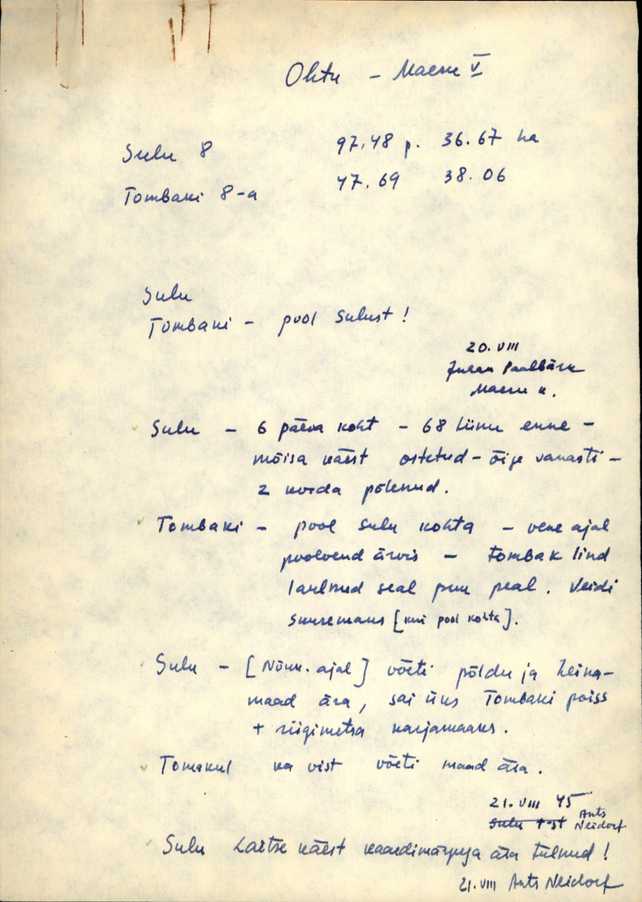 Ohtu - Maeru V
Sulu 8 97.48 p. 36.67 ha
Tombaki 8-a 47.69 38.06
Sulu
Tombaki - pool Sulust!
20. VIII
Juhan Paalbärk
Maeru k.
Sulu - 6 päeva koht - 68 hinu enne -
mõisa käest ostetud - õige vanasti -
2 korda põlenud.
Tombaki - pool Sulu kohta - vene ajal
poolvend ärvis - tombak lind
laulnud seal puu peal. Veidi
suuremaks [kui pool kohta].
Sulu - [Nõuk. ajal] võeti põldu ja heina-
maad ära, sai üks Tombaki poiss
+ riigimetsa karjamaaks.
Tomakul ka vist võeti maad ära.
21. VIII 45 Ants
Neidorf
Sulu Laitse käest kaardimänguga ära tulnud!
21. VIII Ants Neidorf